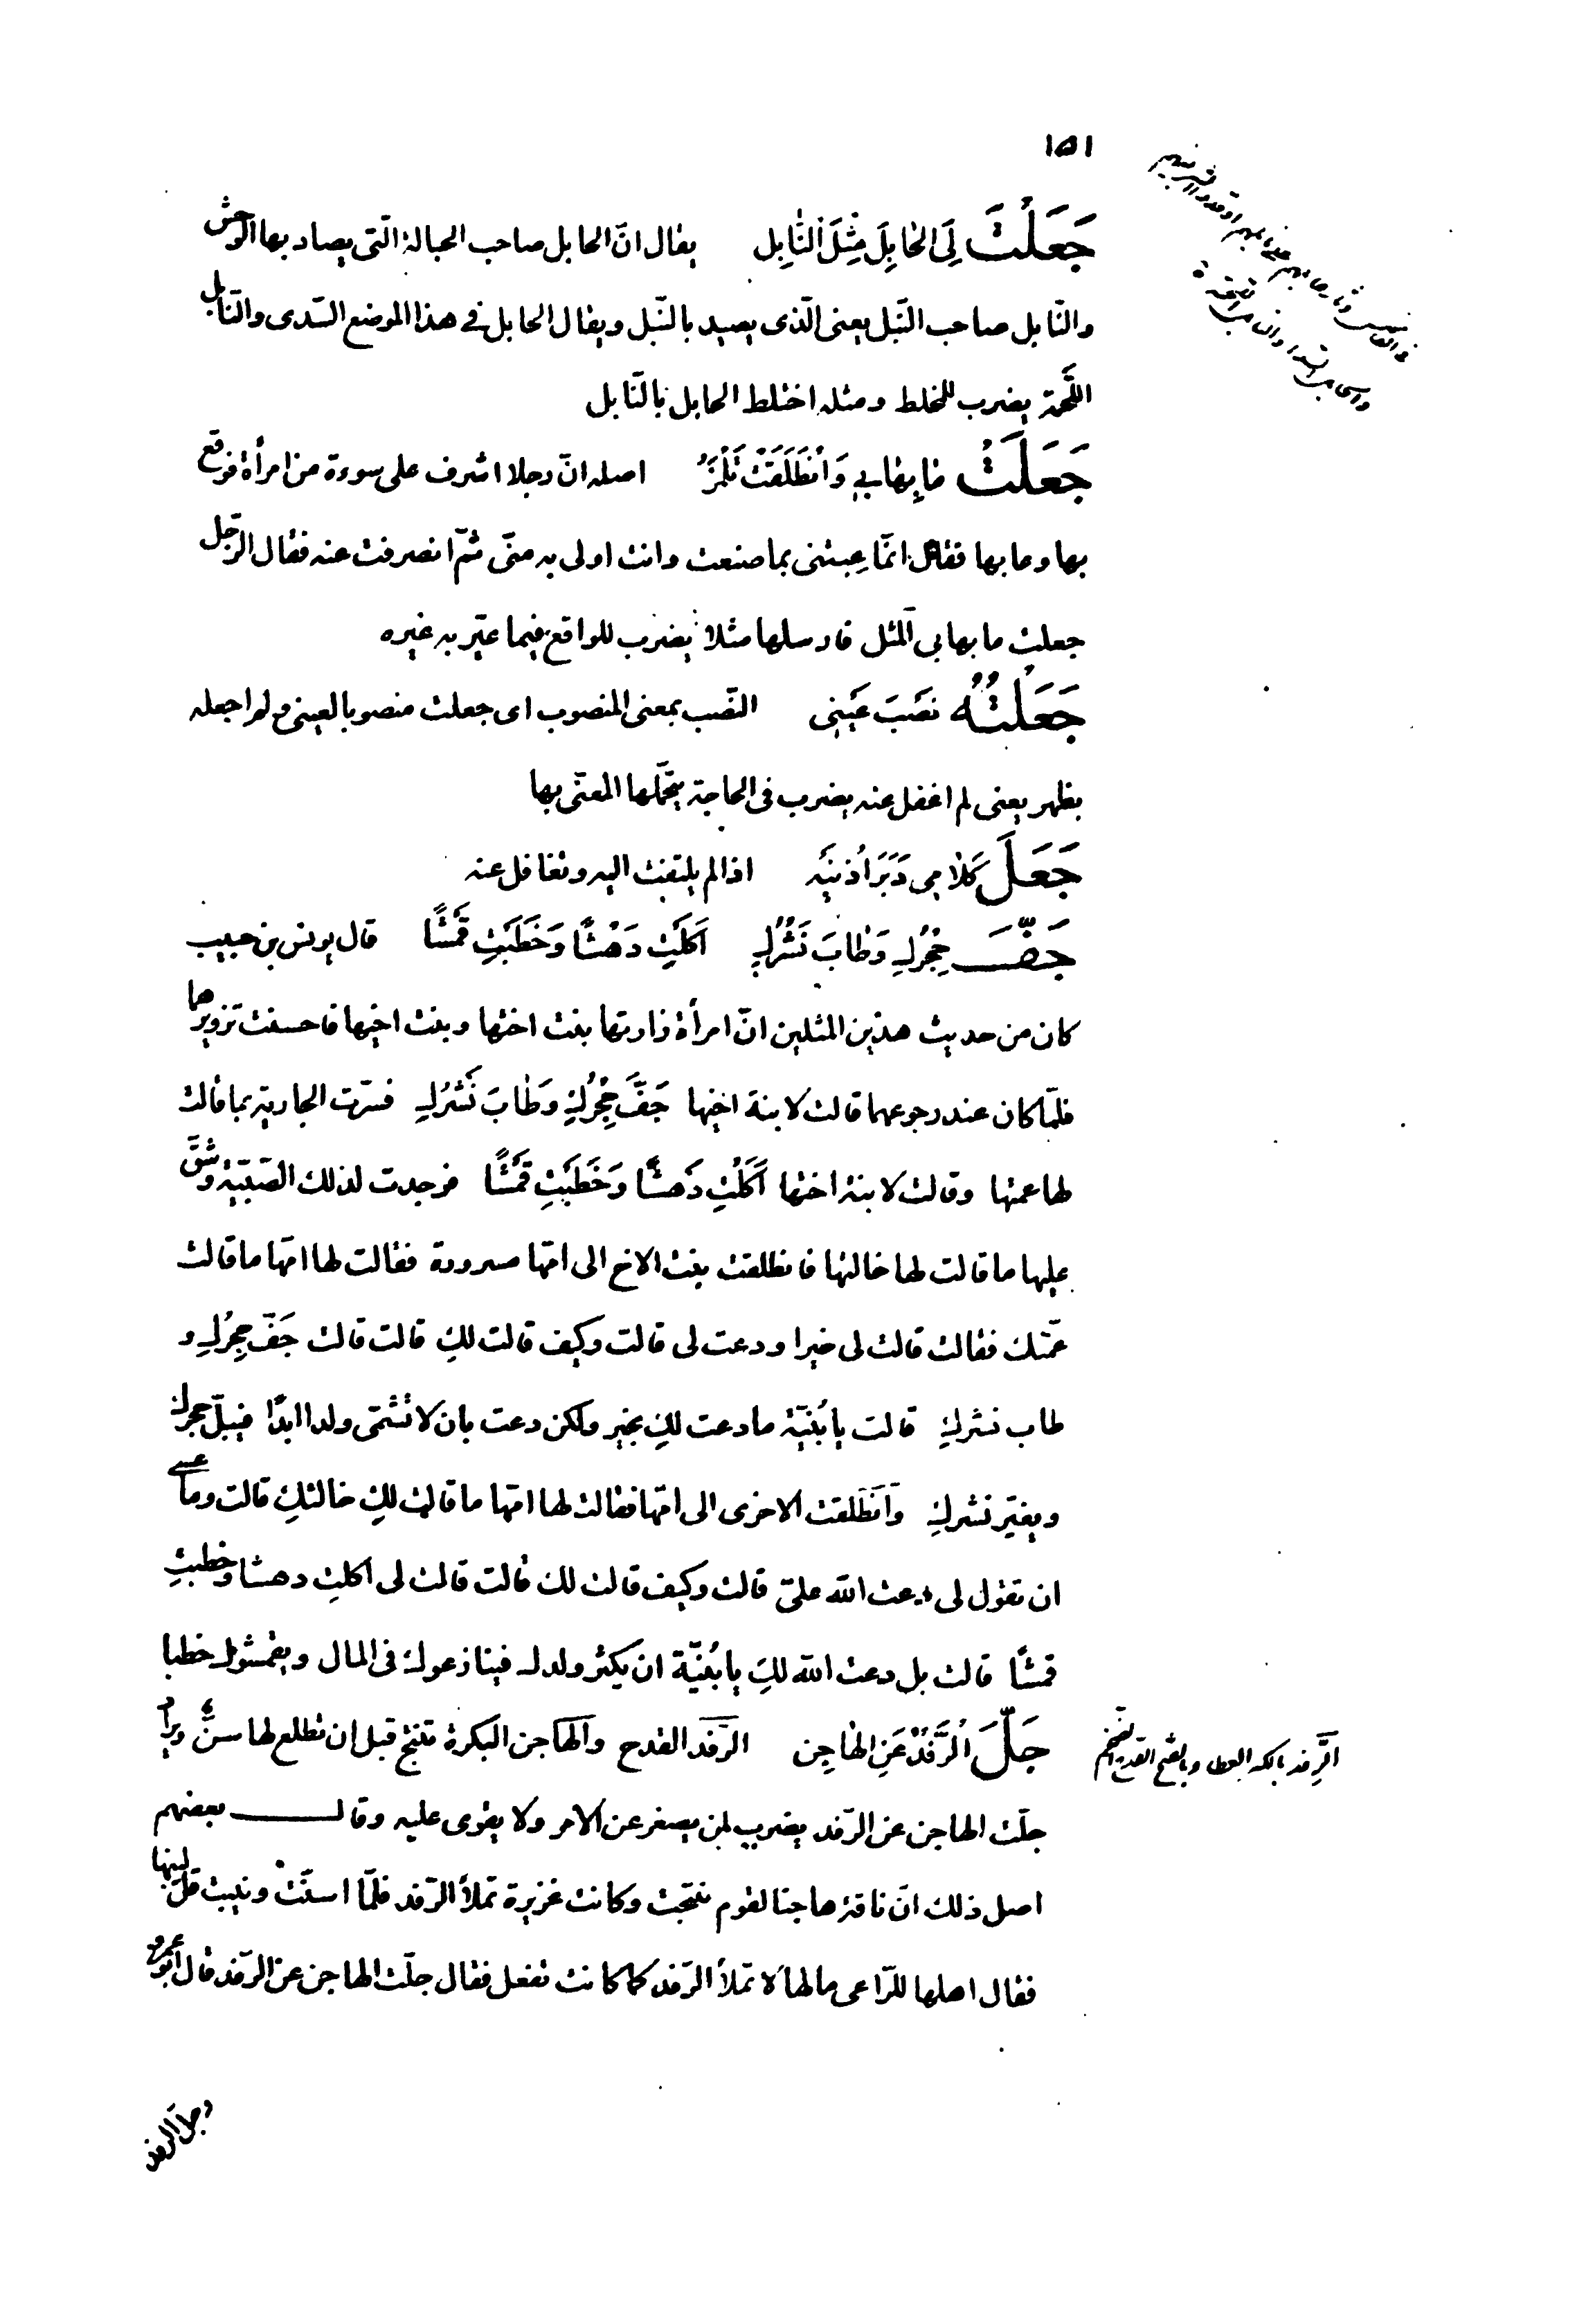 ١٥١
جَعَلْتَ لِيَ الحَابِلَ مِثْلَ النَّابِلِ يقال انّ الحابل صاحب الحبالة الّتى يصاد بها الوحش
والنّابل صاحب النّبل يعنى الّذى يصيد بالنّبل ويقال الحابل فى هذا الموضع السّدى والنّابل
اللّحمة يضرب للمخلط ومثله اختلط الحابل بالنّابل
جَعَلَتْ مَا بِهَا بِي وَانْطَلَقَتْ تَلْمِزُ اصله انّ رجلا اشرف على سوءة من امرأة فوقع
بها وعابها فقالت انّما عِبتنى بما صنعت وانت اولى به منّى ثمّ انصرفت عنه فقال الرّجل
جعلت ما بها بى المثل فارسلها مثلا يضرب للواقع فيما عيّر به غيره
جَعَلْتُهُ نَصْبَ عَيْنِى النّصب بمعنى المنصوب اى جعلت منصوبا لعينى ولم اجعله
بظهر يعنى لم اغفل عنه يضرب فى الحاجة يتحمّلها المعنّى بها
جَعَلَ كَلَامِى دَبْرَ اُذُنَيْهِ اذا لم يلتفت اليه وتغافل عنه
جَفَّ حِجْرُكِ وَطَابَ نَشْرُكِ اَكَلْتِ دَهْشًا وَحَطَبْتِ قَمْشًا قال يونس بن حبيب
كان من حديث هذين المثلين انّ امرأة زارتها بنت اختها وبنت اخيها فاحسنت تزويرهما
فلمّا كان عند رجوعهما قالت لابنة اخيها جَفَّ حِجْرُكِ وَطَابَ نَشْرُكِ فسرّت الجارية بما قالت
لها عمتها وقالت لابنة اختها اَكَلْتِ دَهْشًا وَحَطَبْتِ قَمْشًا فوجدت لذلك الصّبيّة وشقّ
عليها ما قالت لها خالتها فانطلقت بنت الاخ الى امّها مسرورة فقالت لها امّها ما قالت
عمّتك فقالت قالت لى خيرا ودعت لى قالت وكيف قالت لكِ قالت قالت جَفّ حِجرُكِ و
طاب نشركِ قالت يا بُنيّة ما دعت لكِ بخير ولكن دعت بان لا تشمّى ولدا ابدًا فيبلّ حجركِ
ويغيّر نشركِ وانْطَلقت الاخرى الى امّها فقالت لها امّها ما قالت لكِ خالتكِ قالت وما عسى
ان تقول لى دعت الله علىّ قالت وكيف قالت لك قالت قالت لى اكلتِ دهشا وحطبتِ
قمشًا قالت بل دعت الله لكِ يا بُنيّة ان يكثر ولدك فينازعوك فى المال ويقمشوا حطبا
جَلَّ الرَّفْدُ عَنِ الهَاجِنِ الرّفد القدح والهاجن البكرة تنتج قبل ان تطلع لها سنّ ويراد
جلّت الهاجن عن الرّفد يضرب لمن يصغر عن الامر ولا يقوى عليه وقال بعضهم
اصل ذلك انّ ناقة هاجنا لقوم نتجت وكانت غزيرة تملأ الرّفد فلمّا اسنّت ونيبت قلّ لبنها
فقال اهلها للرّاعى ما لها لا تملأ الرّفد كما كانت تفعل فقال جلّت الهاجن عن الرّفد قال ابو عمرو
الرِّفد بالكسر العطاء وبالفتح القدح الضّخم
وجلّ الرفد